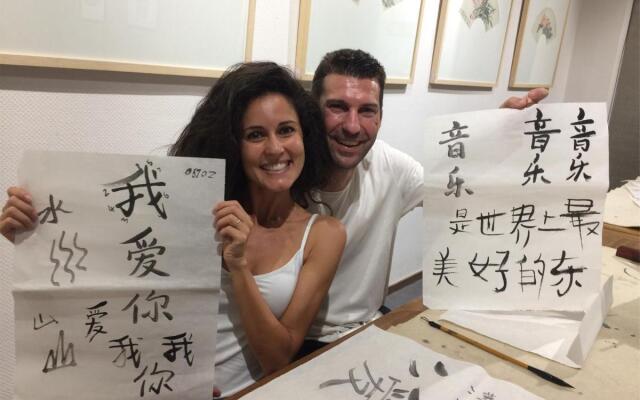 水
山
我爱你
爱
我你
我
音乐
音乐
音乐
是世界上最
美好的东